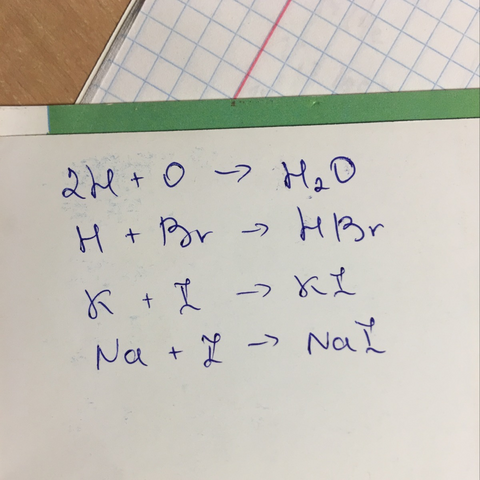 2H + O → H₂O
H + Br → HBr
K + I → KI
Na + I → NaI